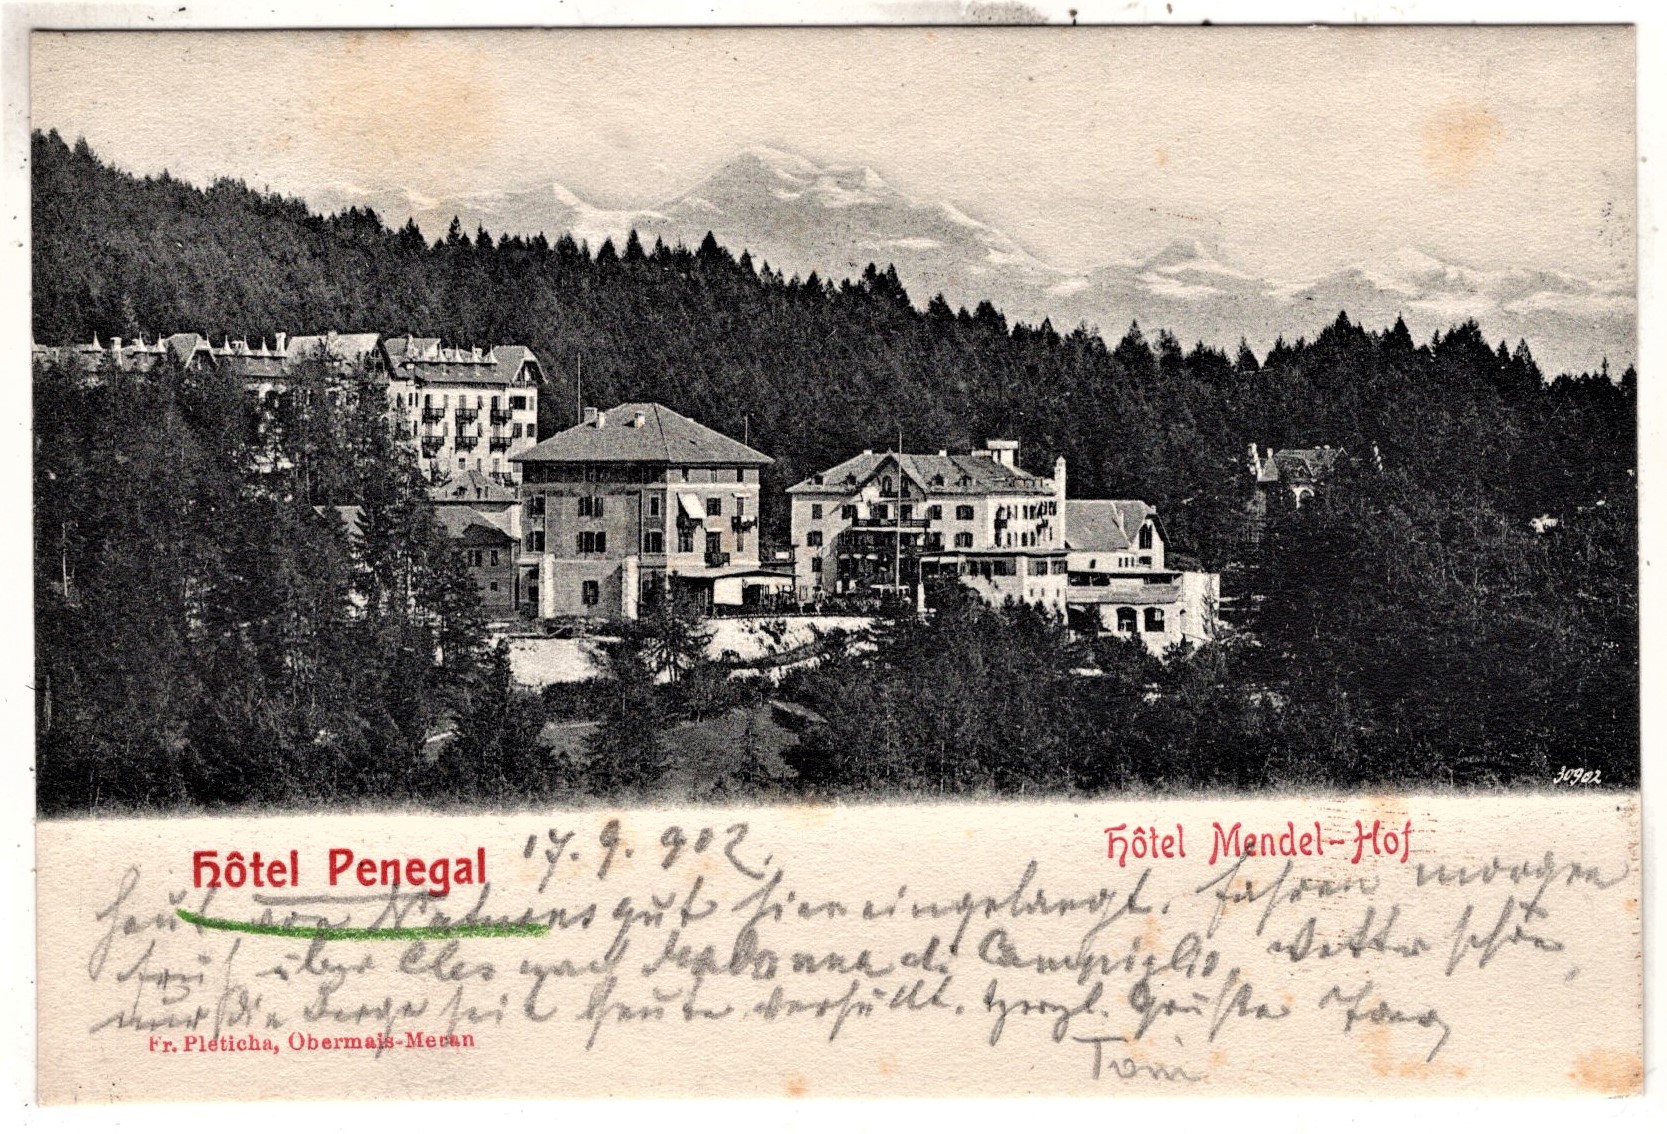 30902
Hôtel Penegal
17. 9. 902.
Hôtel Mendel-Hof
Heut von Naturns gut hier eingelangt. Fahren morgen
früh über Cles nach Madonna di Campiglio, Wetter schön,
nur die Berge seit heute verhüllt. Herzl. Grüße
Toni
Fr. Pleticha, Obermais-Meran